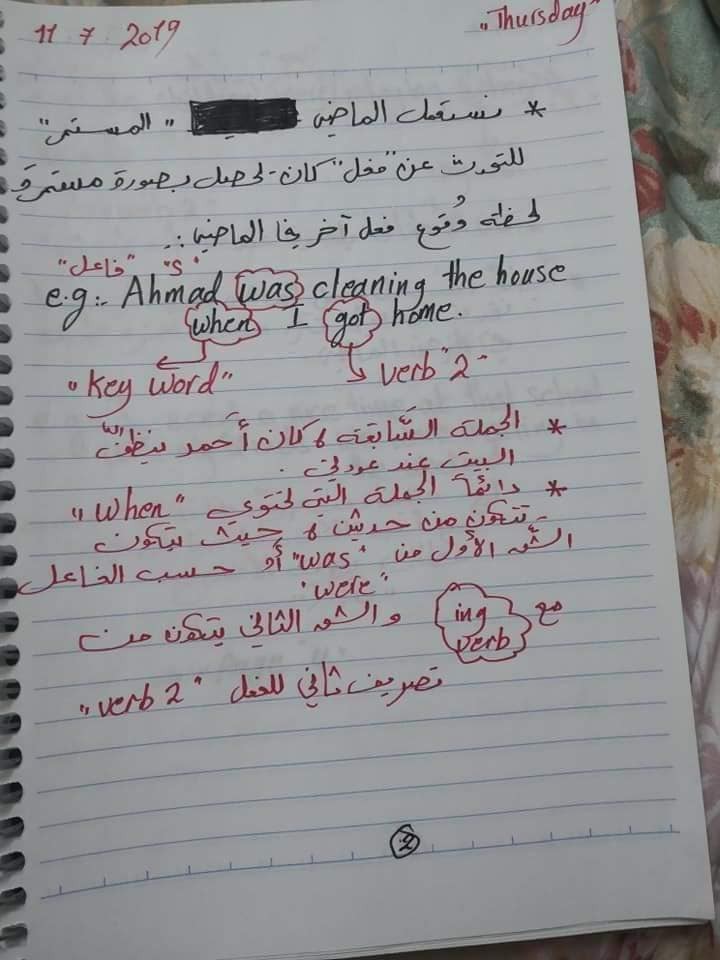 11 7 2019 "Thursday"
* نستعمل الماضي "المستمر"
للتحدث عن "فعل" كان يحصل بصورة مستمرة
لحظة وُقوع فعل آخر في الماضي :.
"S" "فاعل"
e.g:- Ahmad was cleaning the house
when I got home.
"Key Word" verb "2"
* الجملة السَّابقة، كان أَحمد ينظفُ
البيت عند عودتي.
* دائمًا الجملة التي تحتوي "when"
تتكون من حدثين، حيث يتكون
الشق الأول من "was" أو حسب الفاعل
"were"
مع ing verb والشق الثاني يتكون من
تصريف ثاني للفعل "verb 2"
2